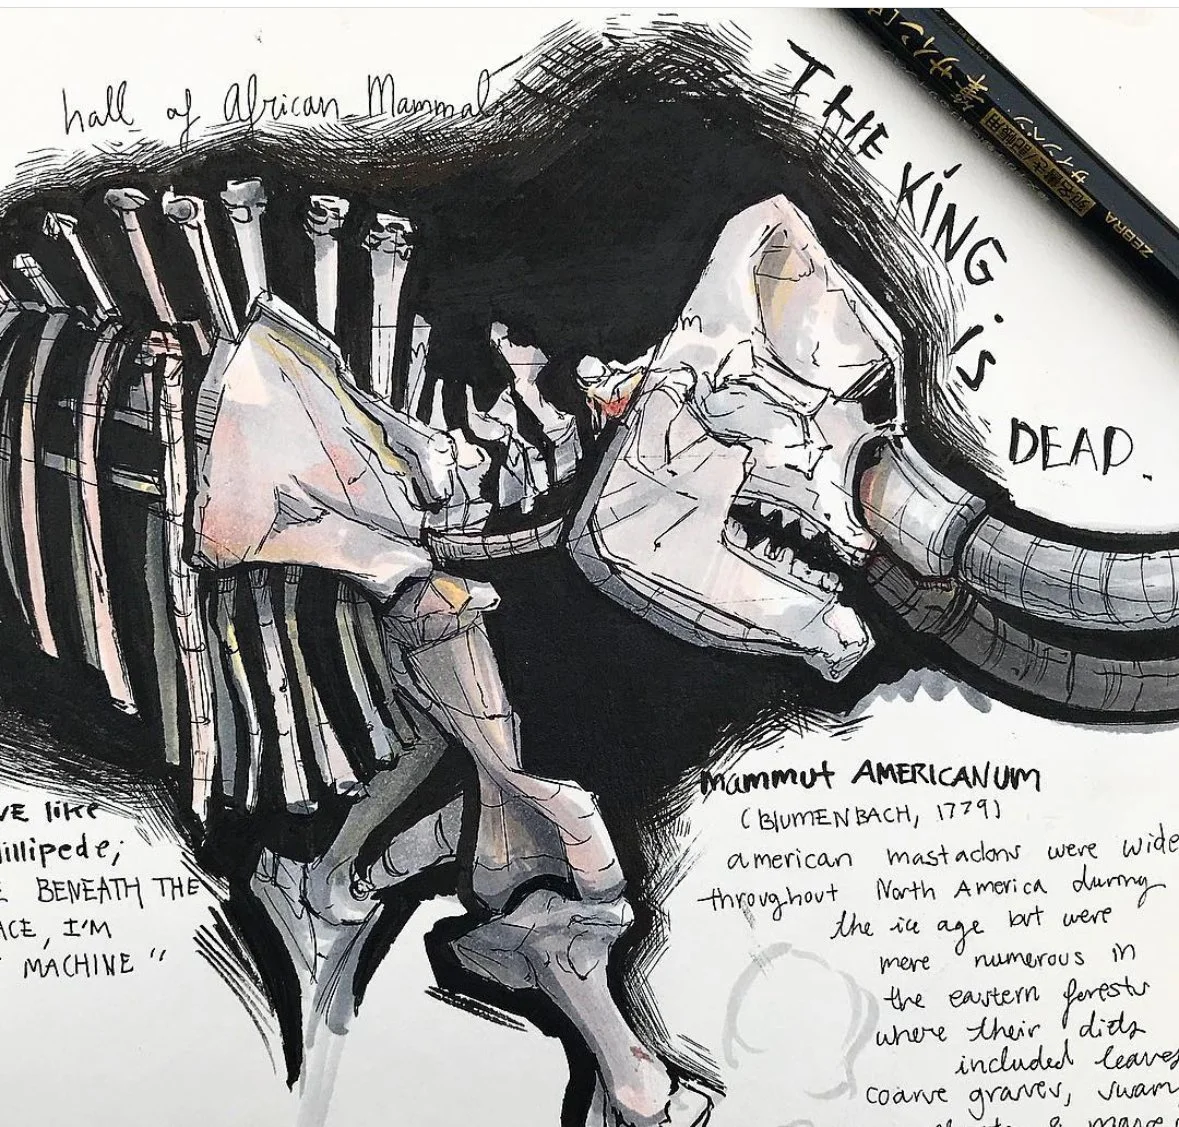 hall of African Mammals
THE KiNG iS DEAD.
ZEBRA
VE like
illipede;
E BENEATH THE
ACE, I'M
MACHINE "
mammut AMERICANUM
(BlUMENBACH, 1779)
american mastadons were wide
throughout North America during
the ice age but were
mere numerous in
the eastern forests
where their diets
included leaves
coarse grasses, swam